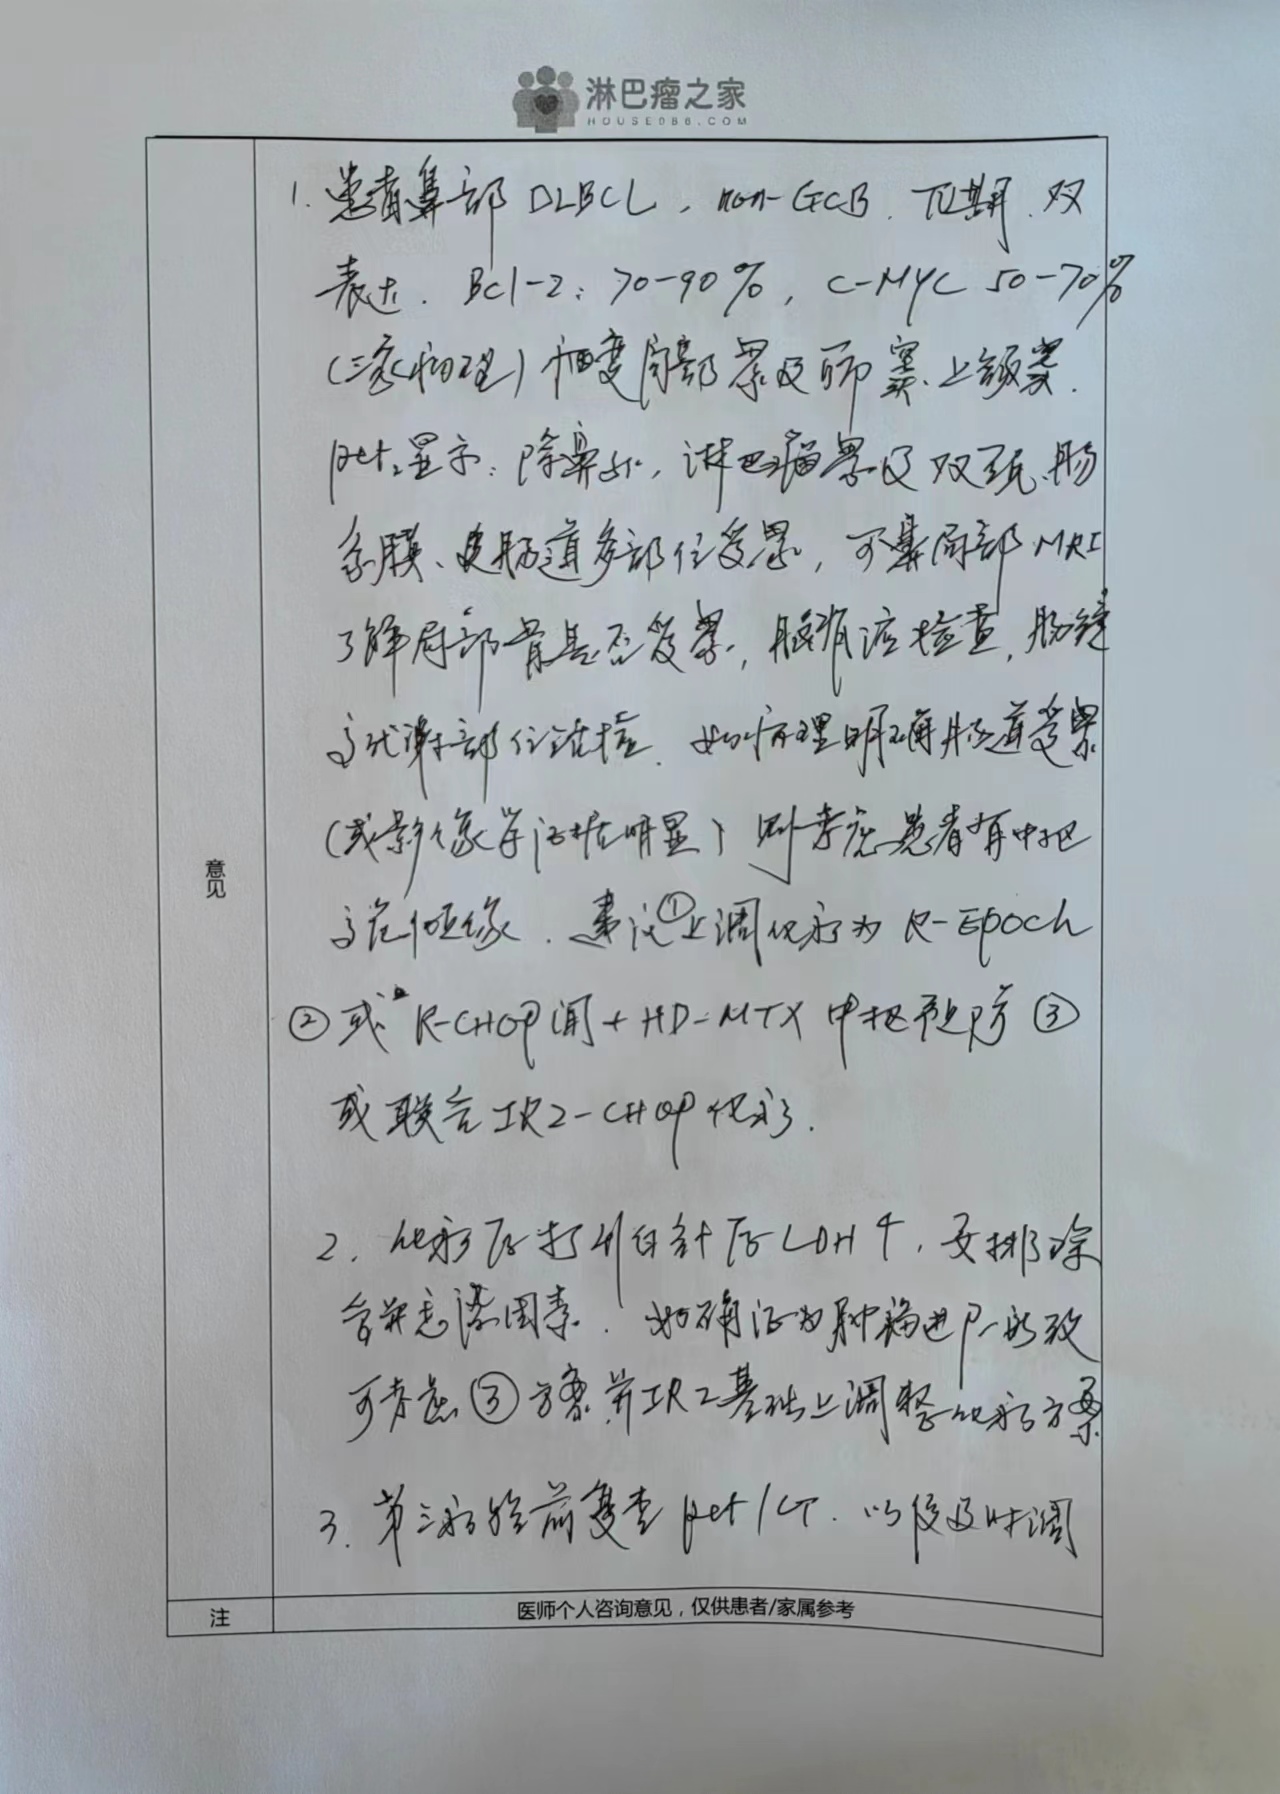 淋巴瘤之家
HOUSE086.COM
意见
1. 患者鼻部 DLBCL, non-GCB, IV期, 双
表达. Bcl-2: 70-90%, C-MYC 50-70%
(三家病理) 病变局部累及筛窦、上颌窦.
pet 显示: 除鼻外, 淋巴瘤累及双颈、肠
系膜、及肠道多部位受累, 可鼻局部MRI
了解局部骨是否受累, 脑脊液检查, 肠镜
高代谢部位活检. 如病理明确肠道受累
(或影像学证据明显) 则考虑患者有中枢
高危因素. 建议①上调化疗为 R-EPOCH
②或 R-CHOP 间 + HD-MTX 中枢预防 ③
或联合 IR2-CHOP 化疗.
2. 化疗后打升白针后 LDH↑, 要排除
合并感染因素. 如确证为肿瘤进展所致
可考虑③方案, 并IR2基础上调整化疗方案
3. 第三疗程前复查 pet/CT. 以便及时调
注
医师个人咨询意见，仅供患者/家属参考